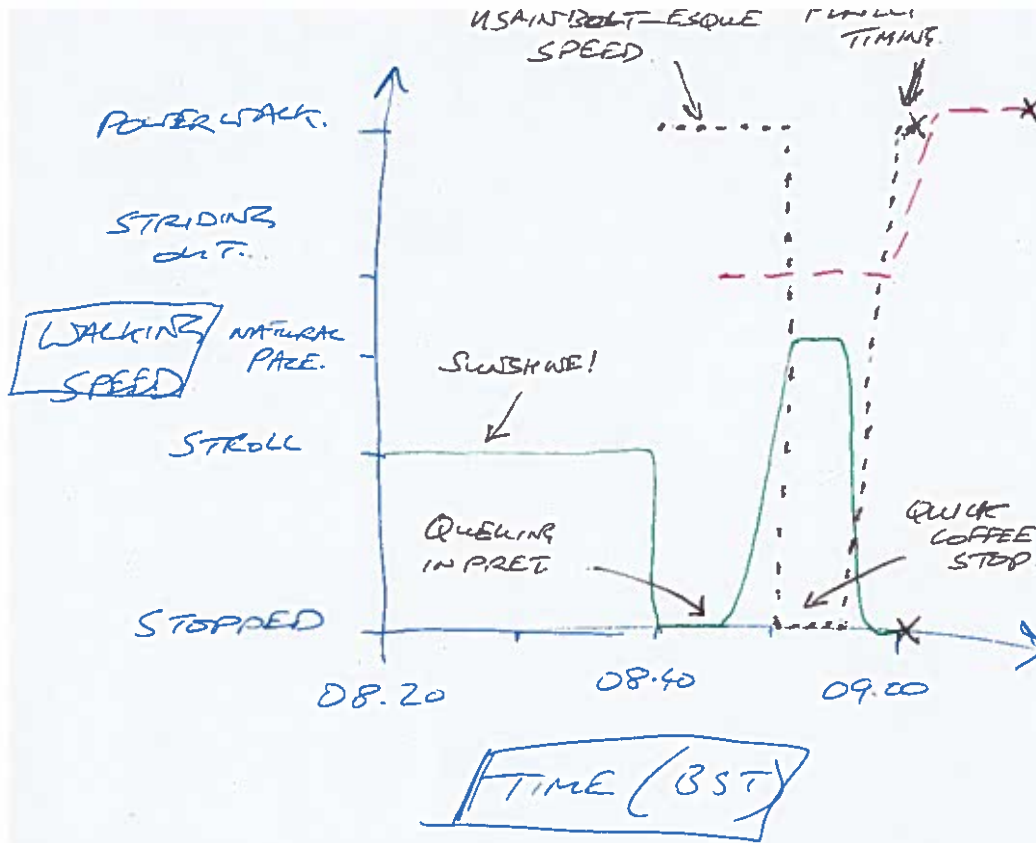 USAIN BOLT-ESQUE
SPEED
TIMING.
POWERWALK.
STRIDING
OUT.
WALKING
SPEED
NATURAL
PACE.
SUNSHINE!
STROLL
QUEUING
IN PRET
QUICK
COFFEE
STOP
STOPPED
08.20
08.40
09.00
TIME (BST)